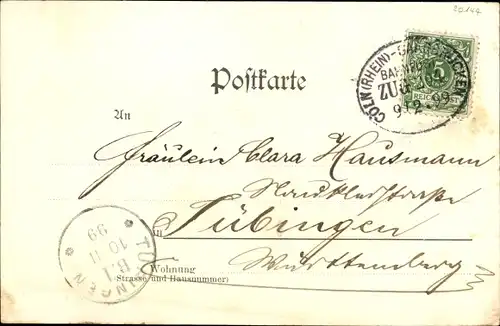 20144
CÖLN (RHEIN)-SAARBRÜCKEN
BAHNPOST
ZUG
99
5
REICHSPOST
Postkarte
An
Fräulein Clara Hausmann
in Tübingen
Württemberg
Wohnung
(Strasse und Hausnummer)
TÜBINGEN
10 11
99